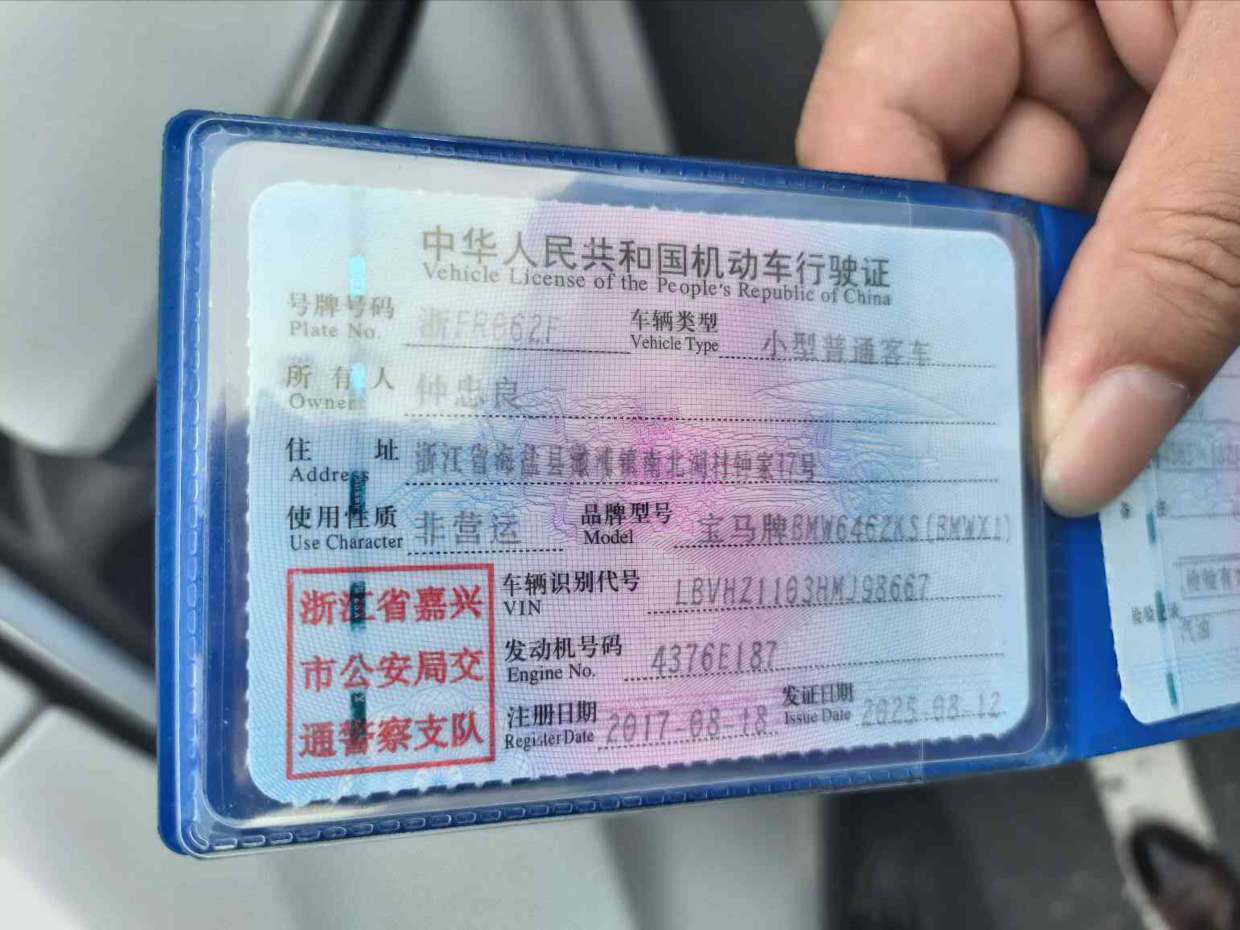 中华人民共和国机动车行驶证
Vehicle License of the People's Republic of China
号牌号码 浙FR062F 车辆类型 小型普通客车
Plate No. Vehicle Type
所有人 钟忠良
Owner
住址 浙江省海盐县澉浦镇南北湖村钟家17号
Address
使用性质 非营运 品牌型号 宝马牌BMW6462KS(BMWX1)
Use Character Model
浙江省嘉兴
市公安局交
通警察支队
车辆识别代号 LBVHZ1103HMJ98667
VIN
发动机号码 4376E187
Engine No.
注册日期 2017-08-18 发证日期 2025-08-12
Register Date Issue Date
备 注
检验有
检验记录
汽油